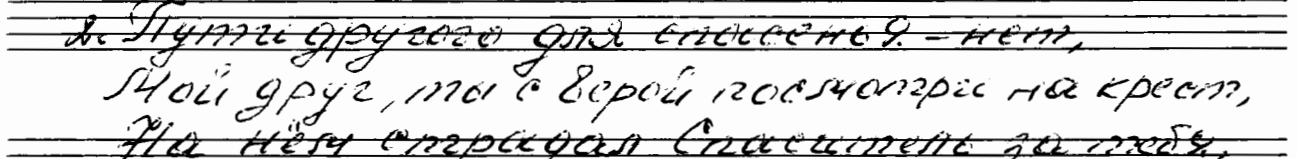 2. Пути другого для спасенья – нет,
Мой друг, ты с верой посмотри на крест,
На нём страдал Спаситель за тебя.